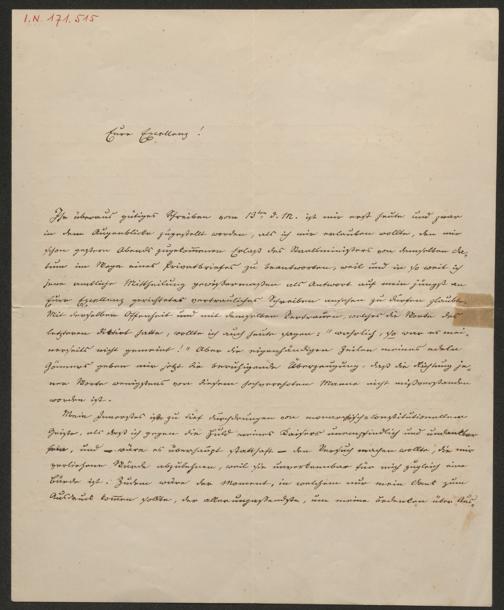 I.N. 171.515
Eure Excellenz!
Ihr überaus gütiges Schreiben vom 13ten d. M. ist mir erst heute und zwar
in dem Augenblicke zugestellt worden, als ich mir erlauben wollte, den mir
schon gestern Abends zugekommenen Erlaß des Staatsministers von demselben Da-
tum im Wege eines Privatbriefes zu beantworten, weil und in so weit ich
jene amtliche Mittheilung gewissermaßen als Antwort auf mein jüngst an
Eure Excellenz gerichtetes vertrauliches Schreiben ansehen zu dürfen glaubte.
Mit derselben Offenheit und mit demselben Vertrauen, welches die Worte des
letzteren dictirt hatte, wollte ich auch heute sagen: "wahrlich, so war es mei-
nerseits nicht gemeint!" Aber die eigenhändigen Zeilen meines edeln
Gönners geben mir jetzt die beruhigende Überzeugung, daß die Richtung je-
ner Worte wenigstens von diesem hochverehrten Manne nicht mißverstanden
worden ist.
Mein Innerstes ist zu tief durchdrungen von monarchisch-constitutionellem
Geiste, als daß ich gegen die Huld meines Kaisers unempfindlich und undankbar
sein, und – wäre es überhaupt statthaft – den Versuch machen wollte, die mir
verliehene Würde abzulehnen, weil sie unverkennbar für mich zugleich eine
Bürde ist. Zudem wäre der Moment, in welchem nur mein Dank zum
Ausdruck kommen sollte, der allerungeeignetste, um meine Gedanken über Aus-